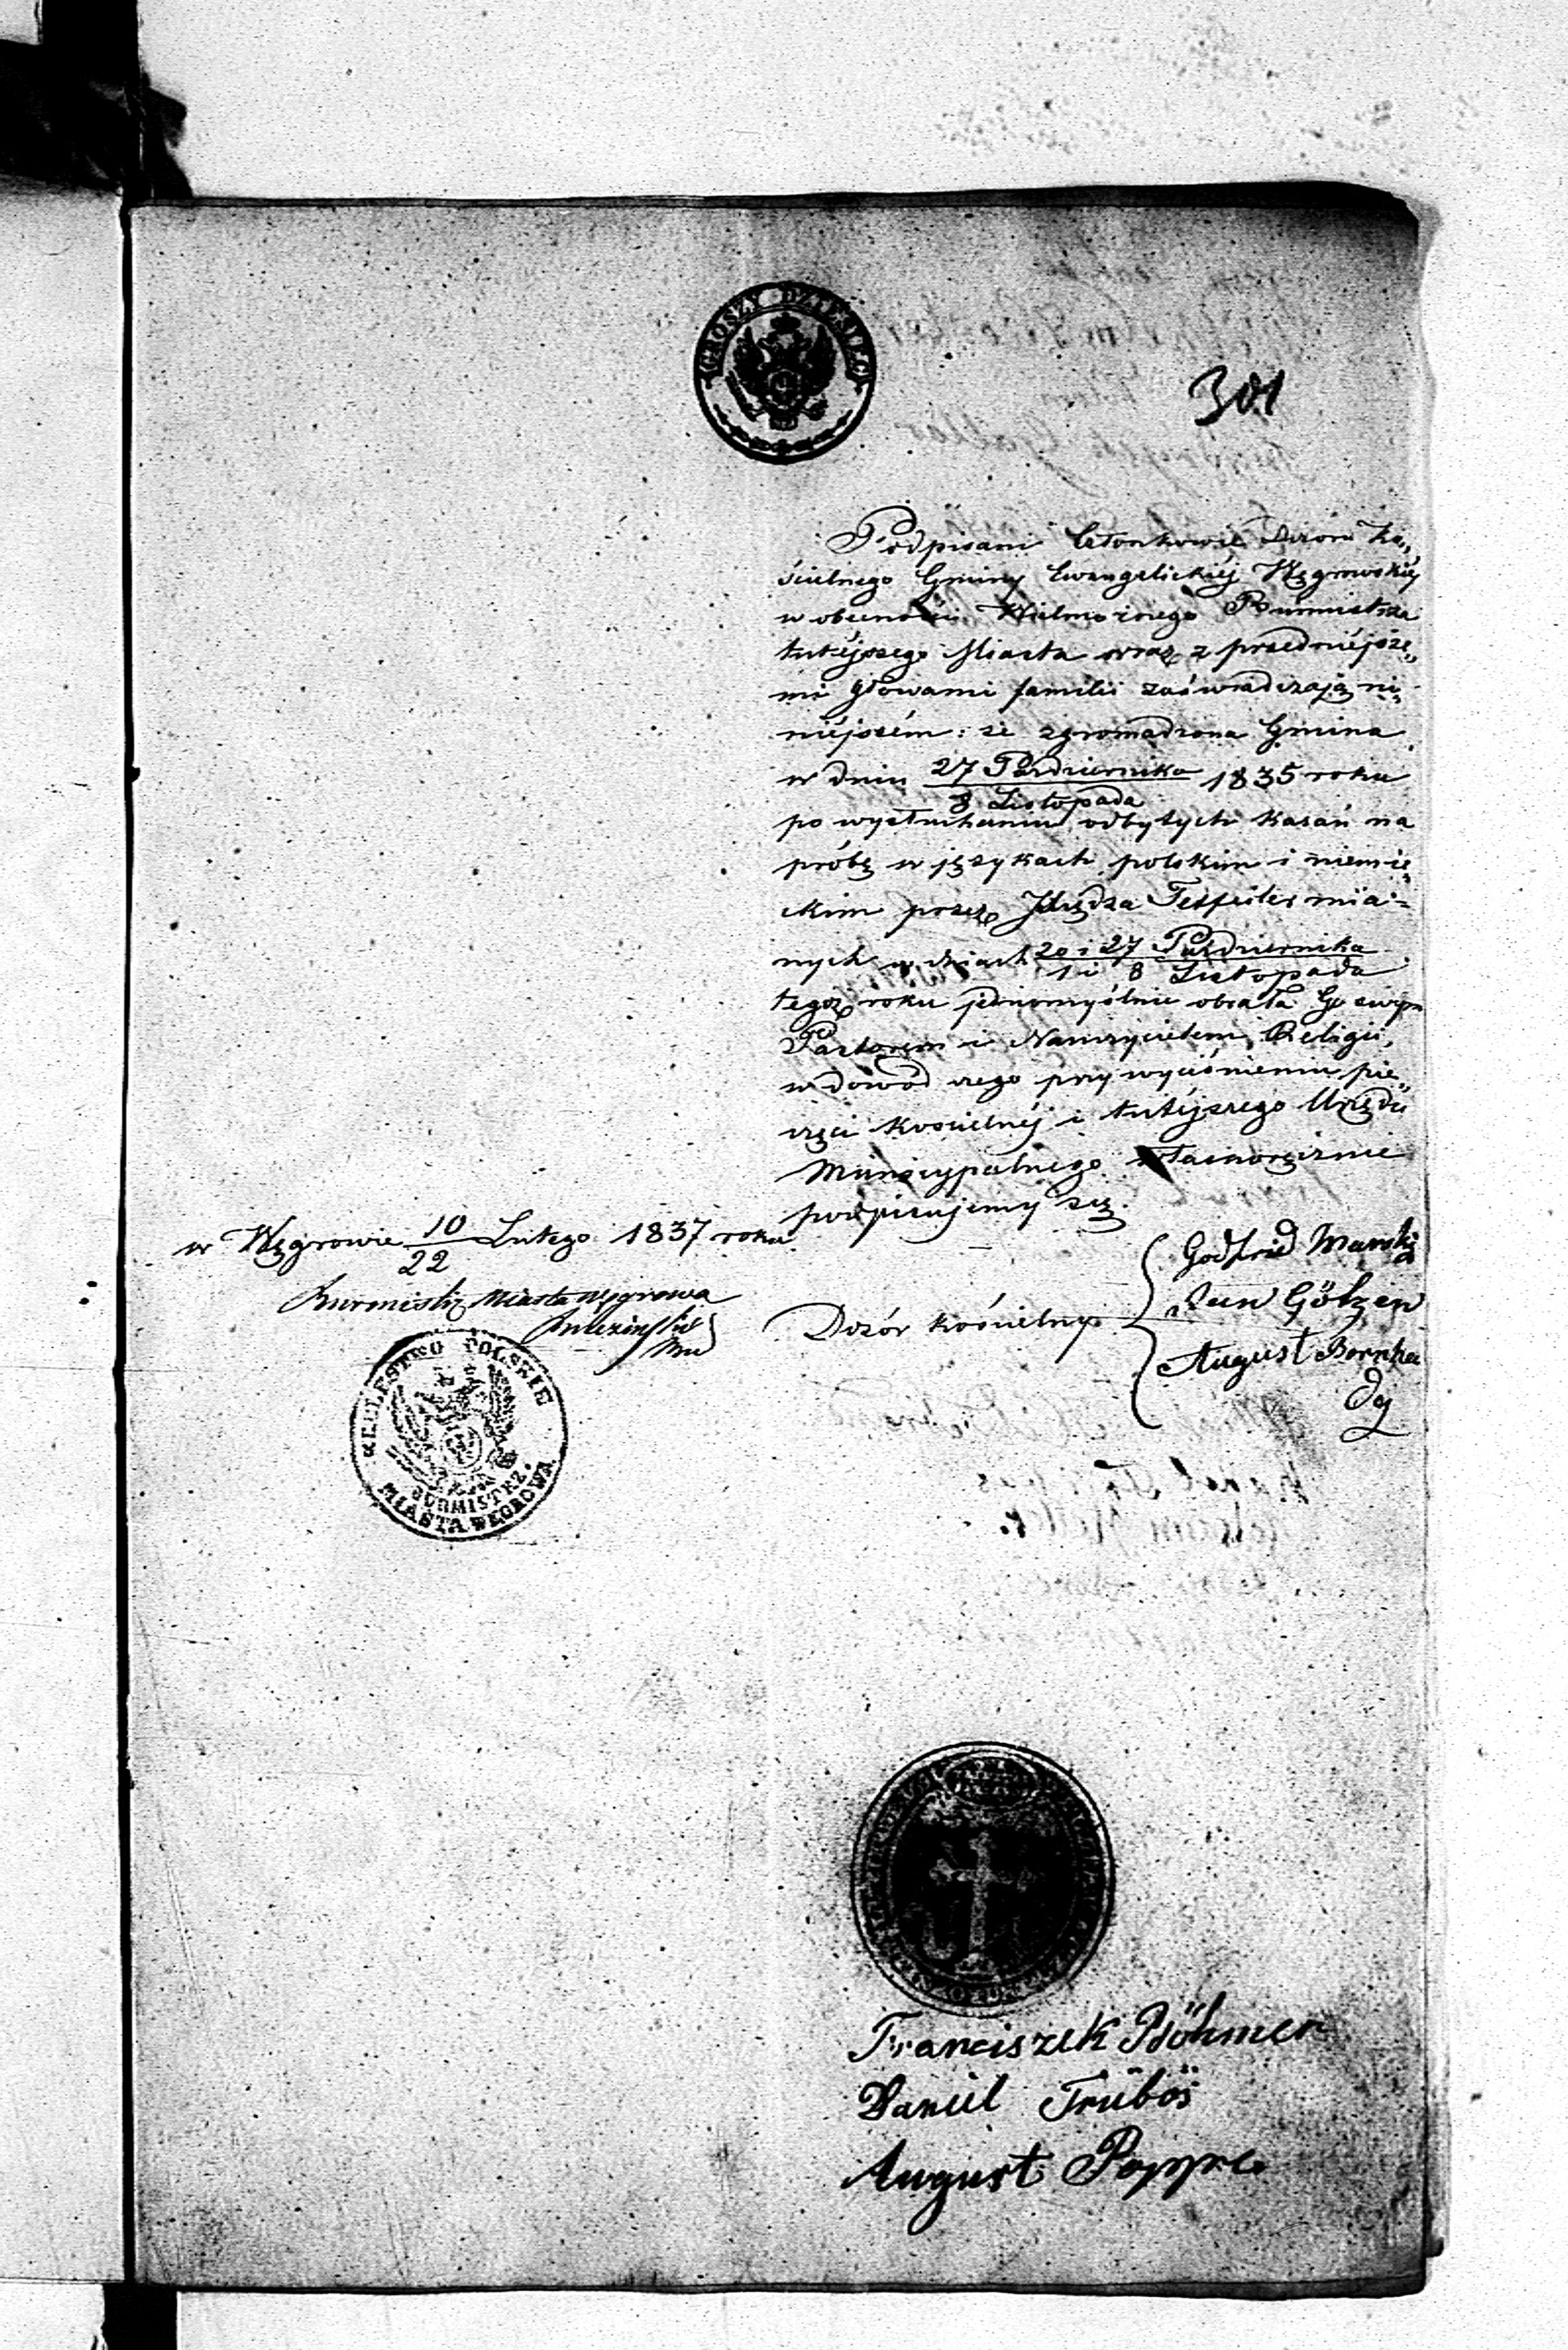 GROSZY DZIESIĘĆ
301
Podpisani Członkowie Dozoru Ko„
ścielnego Gminy Ewangelickiéj Węgrowskiéj
w obecności Wielmożnego Burmistrza
tutéjszego Miasta oraz z przedniéjsze„
mi głowami familii zaświadczają ni„
niéjszém: że zgromadzona Gmina
w dniu 27 Października 1835 roku
8 Listopada
po wysłuchaniu odbytych kazań na
próbę w językach polskim i niemie„
ckim przez Xiędza mia=
nych w dniach 20 i 27 Października
1 i 8 Listopada
tegoż roku jednomyślnie obrała Go swym
Pastorem i Nauczycielem Religii,
w dowód czego przy wyciśnieniu pie„
częci kościelnéj i tutéjszego Urzędu
Municypalnego własnoręcznie
podpisujemy się.
w Węgrowie 10 Lutego 1837 roku
22
Burmistrz Miasta Węgrowa
Dozór kościelny
Godfrid
Jan Götzen
August Bornha
KRÓLESTWO POLSKIE
BURMISTRZ.
MIASTA WĘGROWA
Franciszek Böhmer
Daniel Trübös
August Poppe